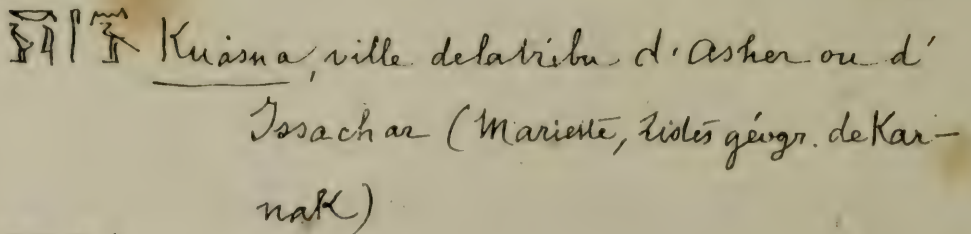 Kuàsna, ville de la tribu d'Asher ou d'
Issachar (Mariette, Listes géogr. de Kar-
nak)